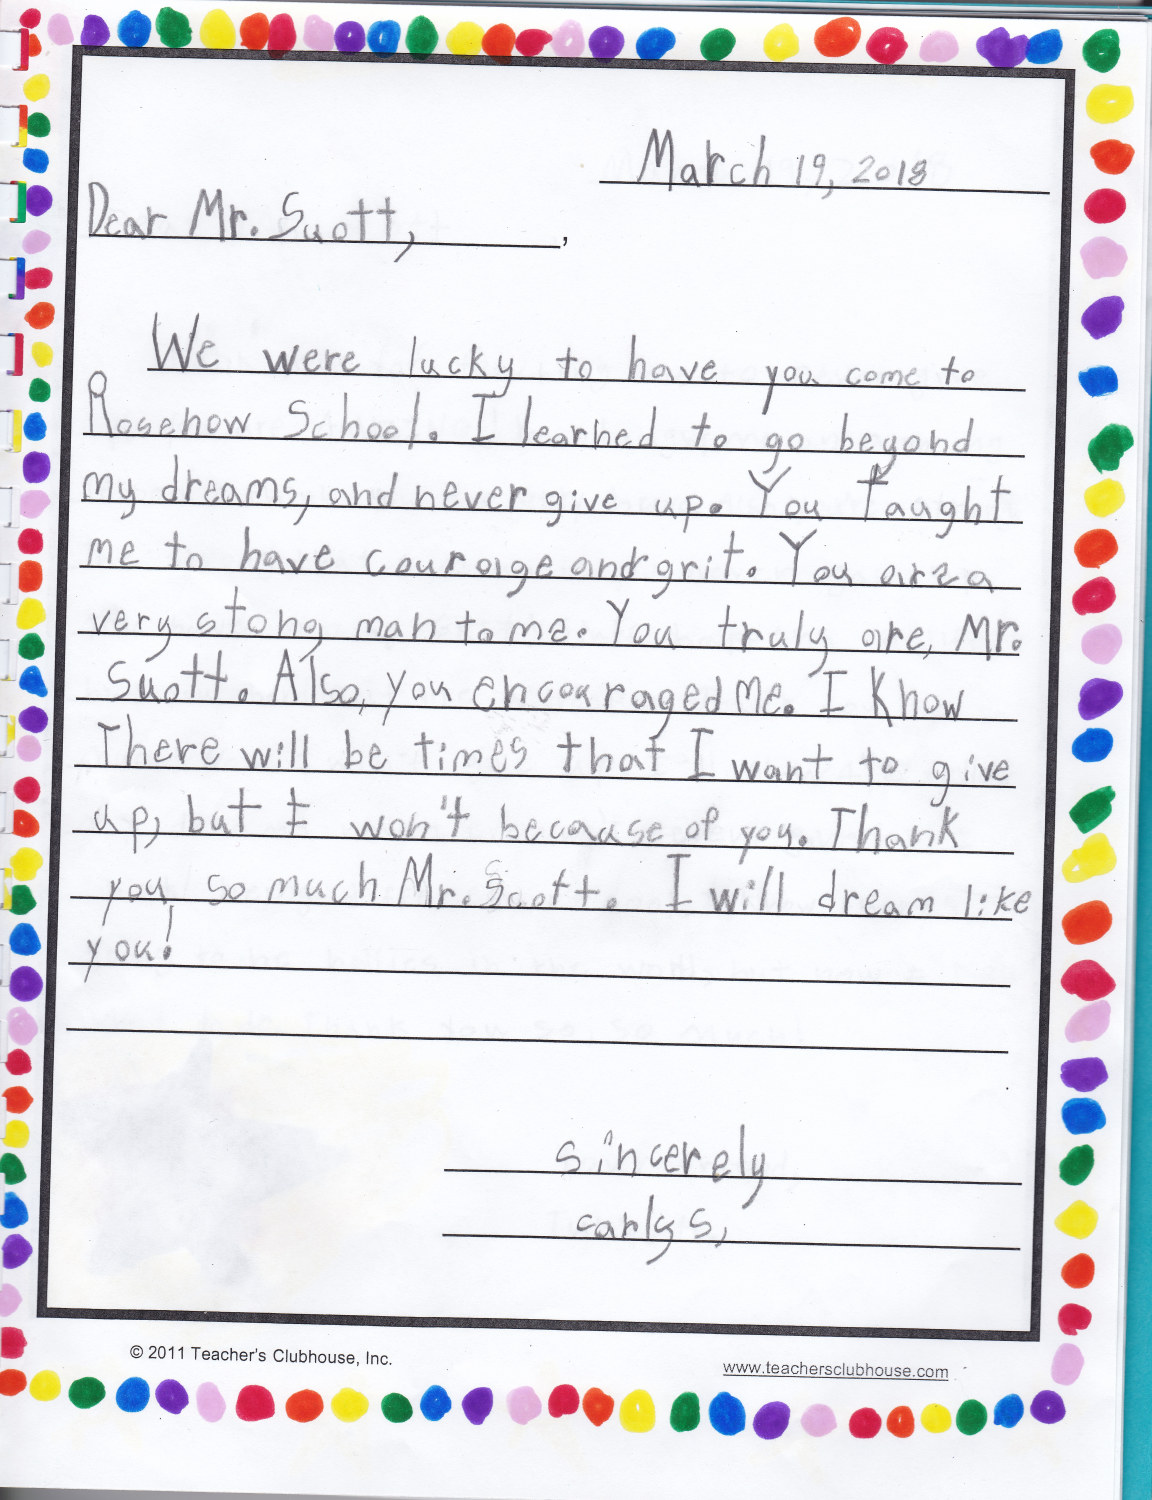 March 19, 2018
Dear Mr. Suott, ,
We were lucky to have you come to
Rosehow School. I learned to go beyond
my dreams, and never give up. You taught
me to have couraige and grit. You are a
very stong man to me. You truly are, Mr.
Suott. Also, you encouraged me. I know
There will be times that I want to give
up, but I won't because of you. Thank
you so much Mr. Scott. I will dream like
you!
sincerely
carly s,
© 2011 Teacher's Clubhouse, Inc.
www.teachersclubhouse.com